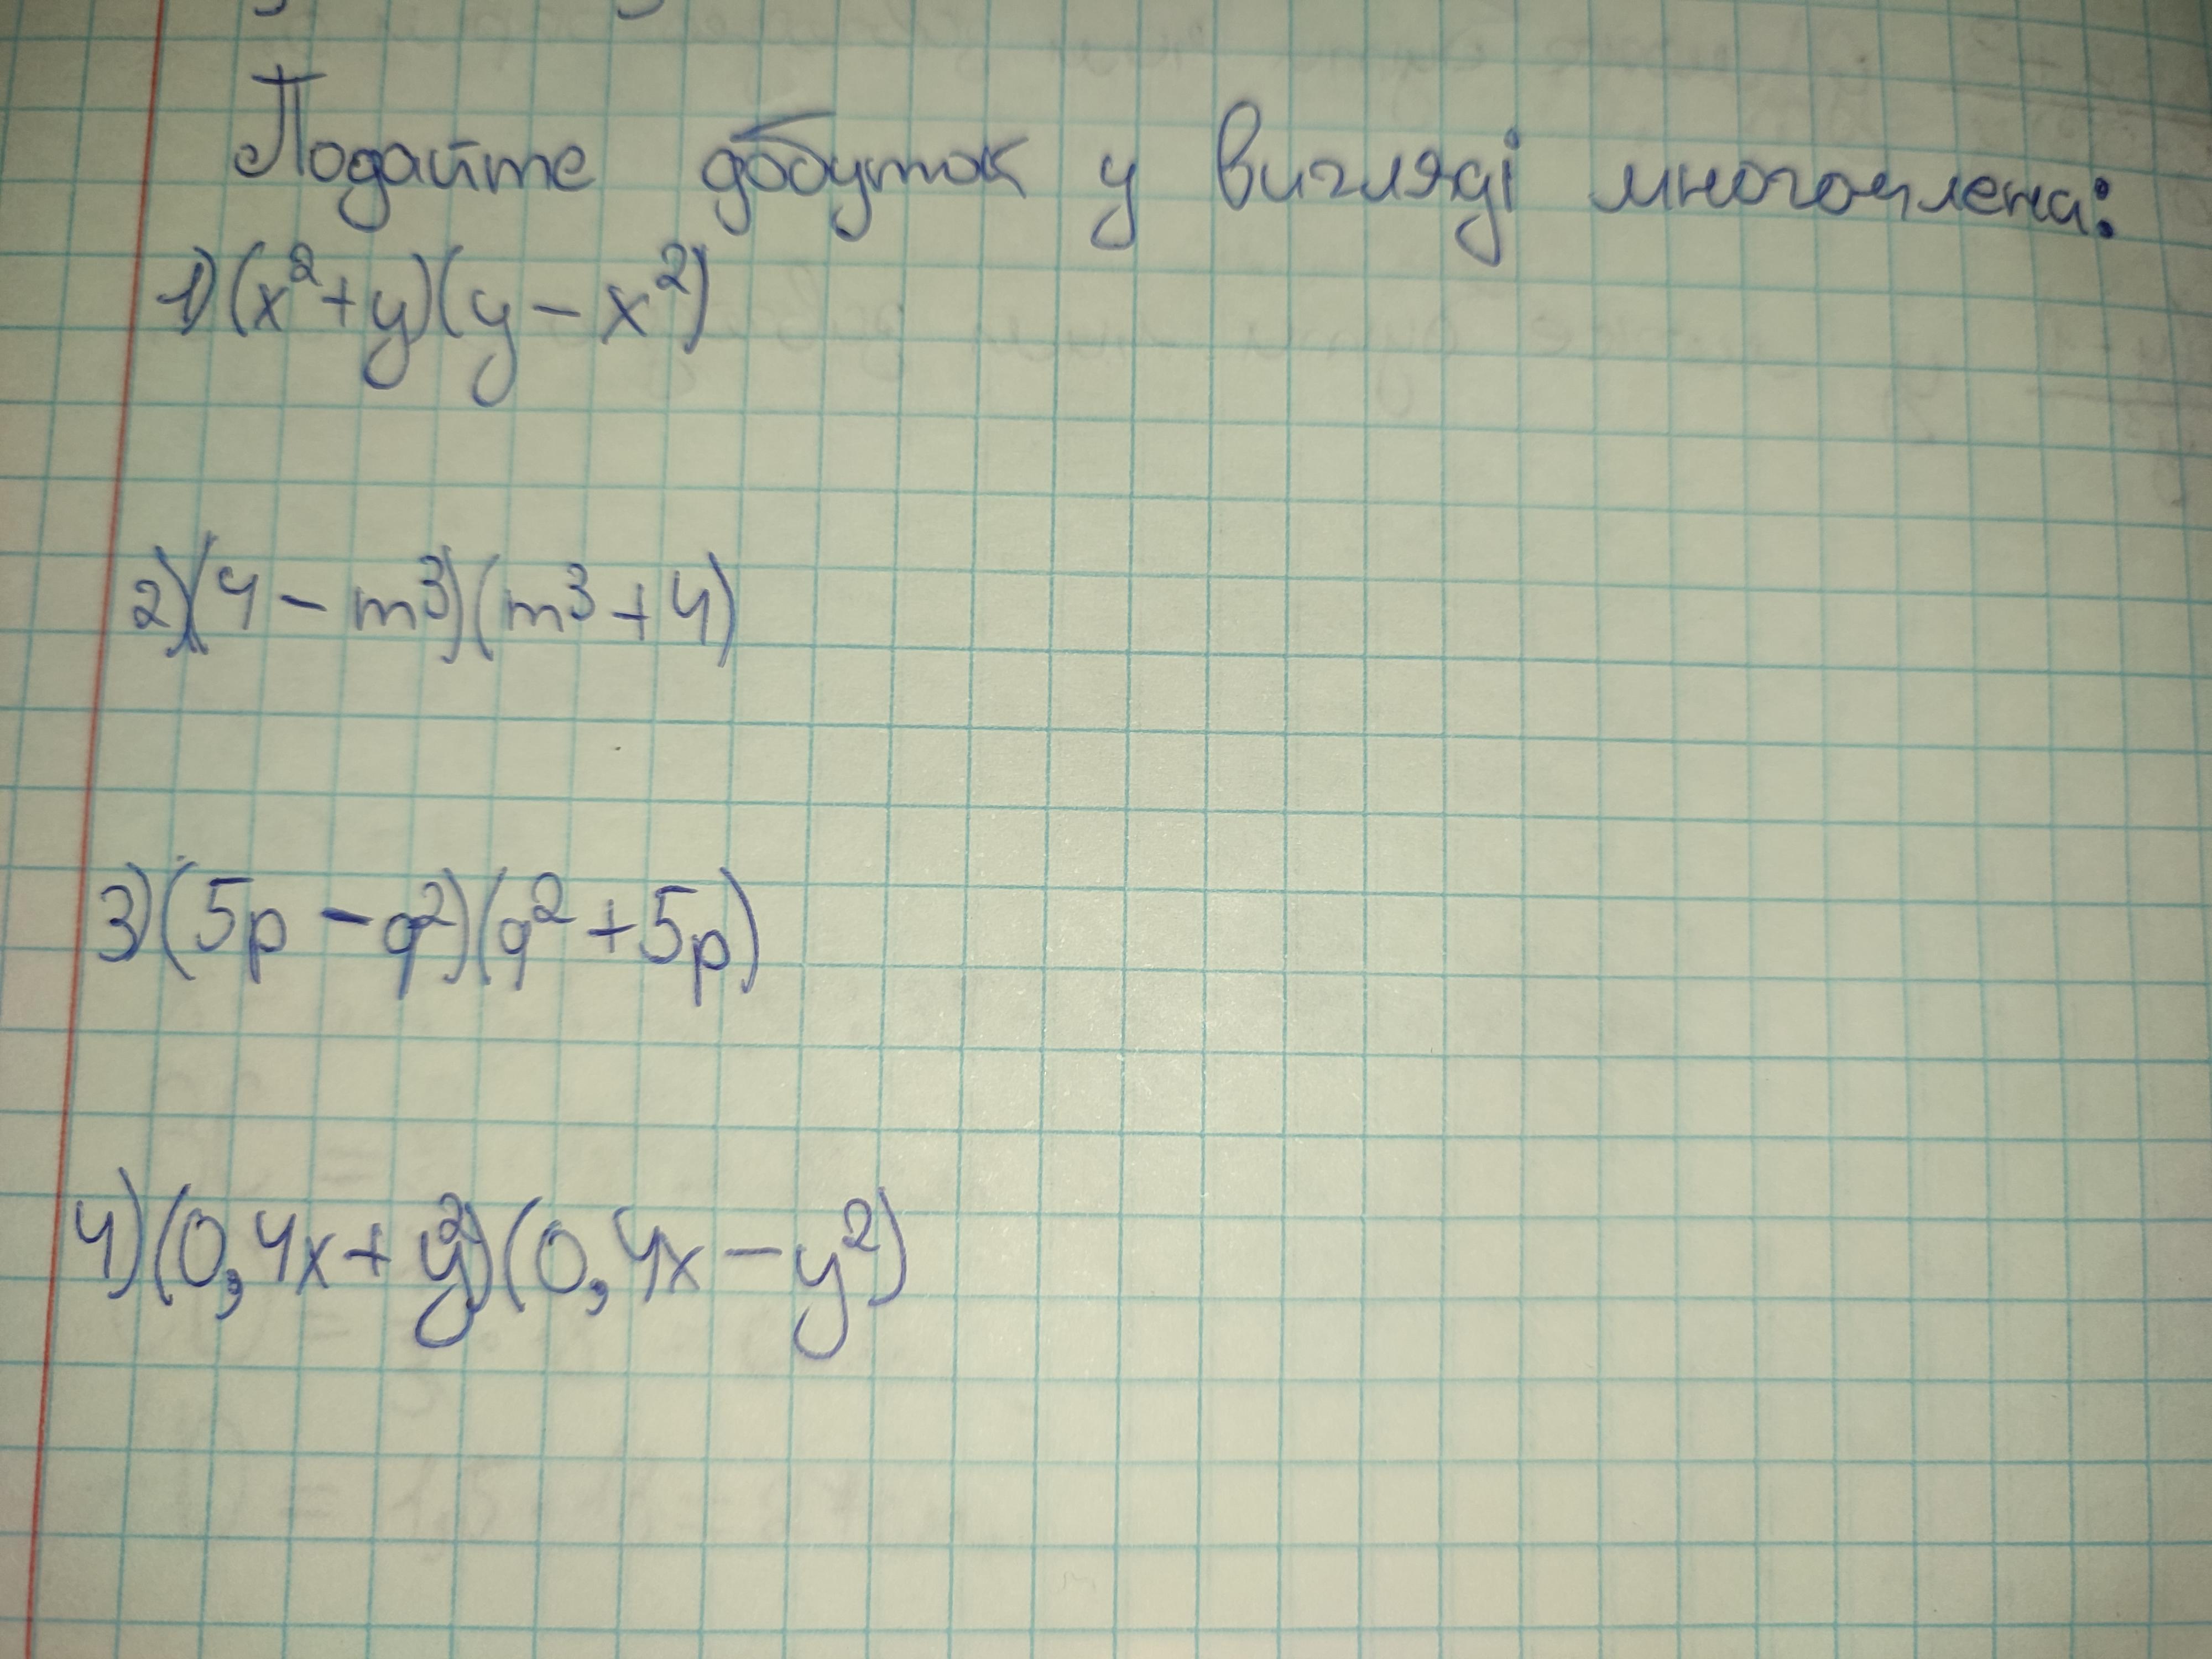 Подайте добуток у вигляді многочлена:
1) (x² + y)(y − x²)
2) (4 − m³)(m³ + 4)
3) (5p − q²)(q² + 5p)
4) (0,4x + y²)(0,4x − y²)